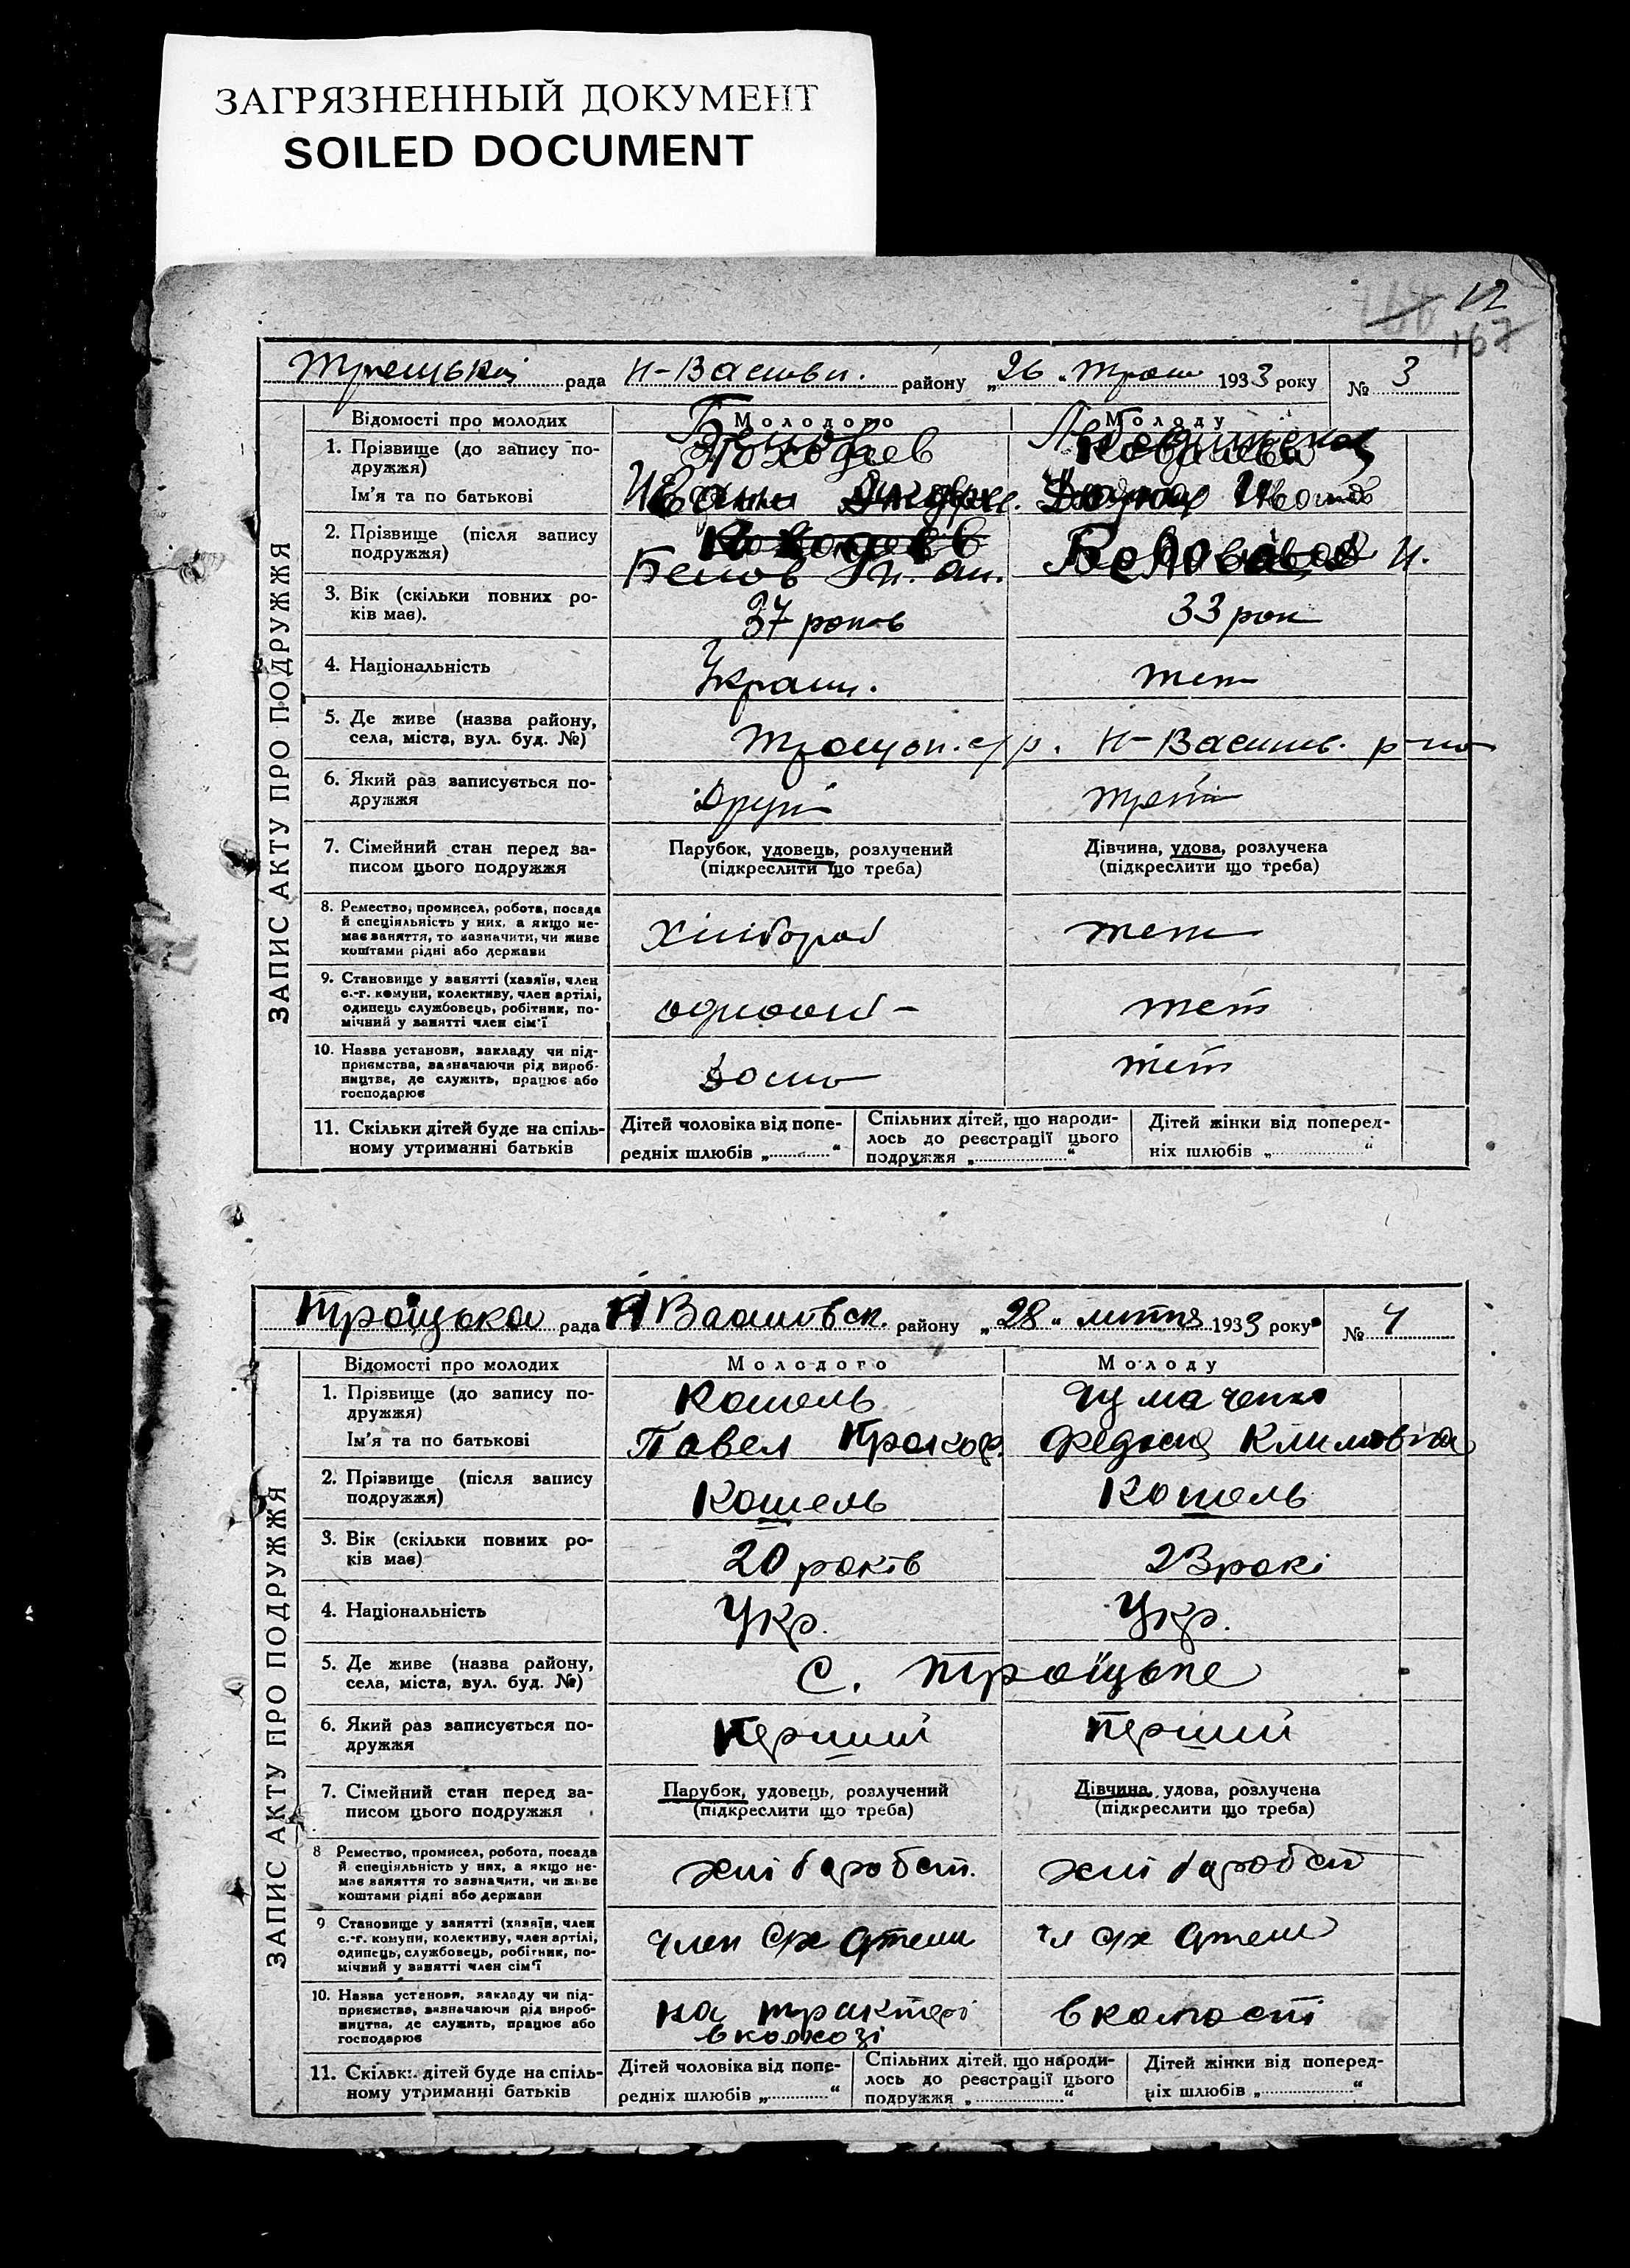 ЗАГРЯЗНЕННЫЙ ДОКУМЕНТ
SOILED DOCUMENT
12
167
рада Н-Васильвк. району „26 „ 1933 року № 3
ЗАПИС АКТУ ПРО ПОДРУЖЖЯ
Відомості про молодих Молодого Молоду
1. Прізвище (до запису по-
дружжя)
Ім'я та по батькові
2. Прізвище (після запису
подружжя)
Белов
3. Вік (скільки повних ро-
ків має).
37 роков 33 рок
4. Національність
Україн. теж
5. Де живе (назва району,
села, міста, вул. буд. №)
с/р. Н-Васильв. р-на
6. Який раз записується по-
дружжя
другий третій
7. Сімейний стан перед за-
писом цього подружжя
Парубок, удовець, розлучений
(підкреслити що треба)
Дівчина, удова, розлучена
(підкреслити що треба)
8. Ремество, промисел, робота, посада
й спеціяльність у них, а якщо не-
має заняття, то зазначити, чи живе
коштами рідні або держави
хлібороб теж
9. Становище у занятті (хазяїн, член
с.-г. комуни, колективу, член артілі,
одинець службовець, робітник, по-
мічний у занятті член сім'ї
теж
10. Назва установи, закладу чи під-
приємства, зазначаючи рід вироб-
ництва, де служить, працює або
господарює
теж
11. Скільки дітей буде на спіль-
ному утриманні батьків
Дітей чоловіка від попе-
редніх шлюбів „ “
Спільних дітей, що народи-
лось до реєстрації цього
подружжя „ “
Дітей жінки від поперед-
ніх шлюбів „ “
Троїцька рада району „28 „ 1933 року № 4
ЗАПИС АКТУ ПРО ПОДРУЖЖЯ
Відомості про молодих Молодого Молоду
1. Прізвище (до запису по-
дружжя)
Кошель Чумаченко
Ім'я та по батькові
Павел Прокоф. Федося Климовна
2. Прізвище (після запису
подружжя)
Кошель Кошель
3. Вік (скільки повних ро-
ків має)
20 років 23 рокі
4. Національність
Укр. Укр.
5. Де живе (назва району,
села, міста, вул. буд. №)
С. Троїцьке
6. Який раз записується по-
дружжя
Перший Перший
7. Сімейний стан перед за-
писом цього подружжя
Парубок, удовець, розлучений
(підкреслити що треба)
Дівчина, удова, розлучена
(підкреслити що треба)
8 Ремество, промисел, робота, посада
й спеціяльність у них, а якщо не-
має заняття то зазначити, чи живе
коштами рідні або держави
хліборобст. хліборобст
9 Становище у занятті (хазяїн, член
с.-г. комуни, колективу, член артілі,
одинець, службовець, робітник, по-
мічний у занятті член сім'ї
член с/х Артели чл с/х Артели
10. Назва установи, закладу чи під-
приємства, зазначаючи рід вироб-
ництва, де служить, працює або
господарює
на тракторі
в колхозі
11. Скільки дітей буде на спіль-
ному утриманні батьків
Дітей чоловіка від попе-
редніх шлюбів „ “
Спільних дітей, що народи-
лось до реєстрації цього
подружжя „ “
Дітей жінки від поперед-
ніх шлюбів „ “